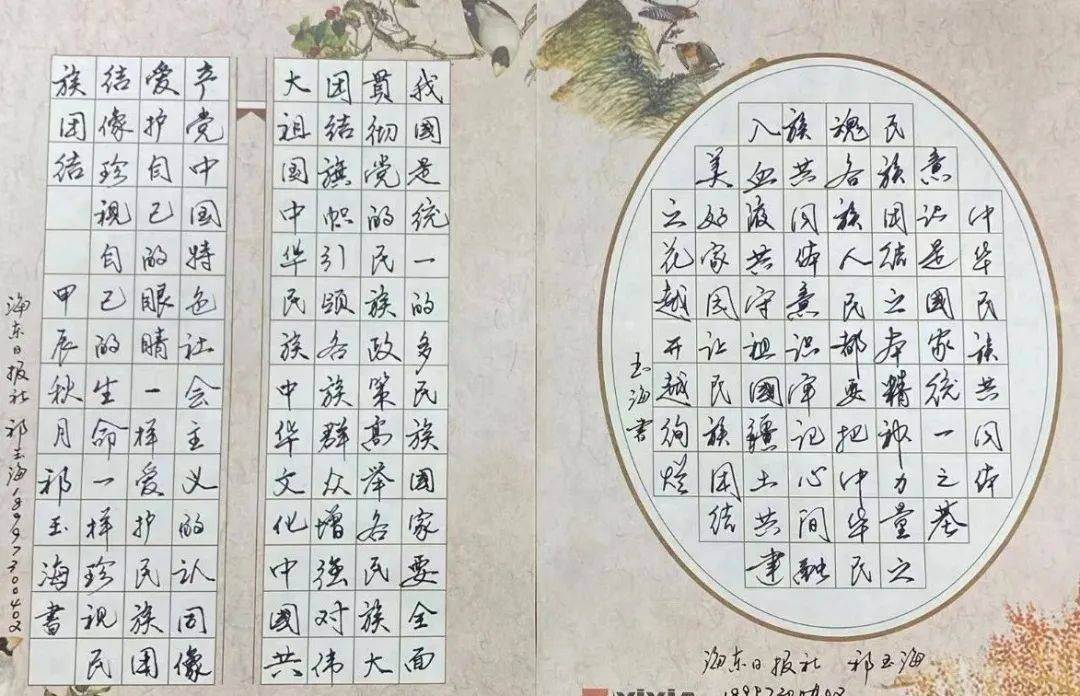 我國是统一的多民族國家要全面
貫彻党的民族政策高举各民族大
团结旗帜引领各族群众增强对伟
大祖国中华民族中华文化中國共
产党中国特色社会主义的认同像
爱护自己的眼睛一样爱护民族團
结像珍视自己的生命一样珍视民
族团结 甲辰秋月祁玉海書
海东日报社 祁玉海18997300402
中华民族共同体
意识是國家统一之基
民族团结之本精神力量之
魂各族人民都要把中华民
族共同体意识牢记心间融
入血液共守祖國疆土共建
美好家园让民族团结
之花越开越绚烂
玉海書
海东日报社 祁玉海